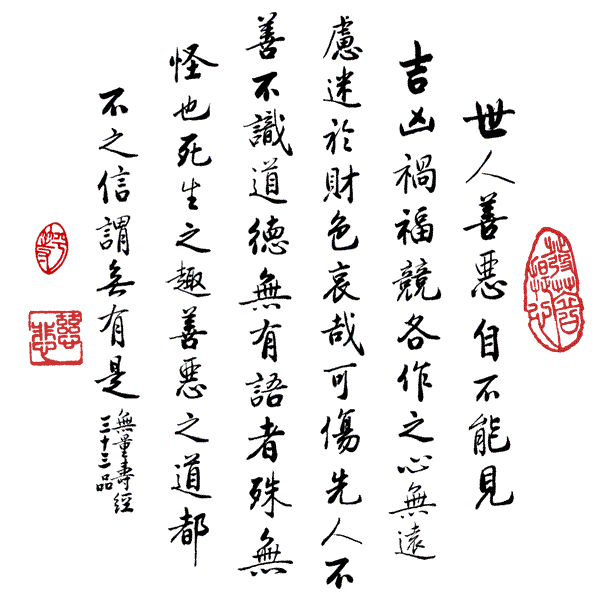 世人善惡自不能見
吉凶禍福競各作之心無遠
慮迷於財色哀哉可傷先人不
善不識道德無有語者殊無
怪也死生之趣善惡之道都
不之信謂無有是
無量壽經
三十三品
慈悲